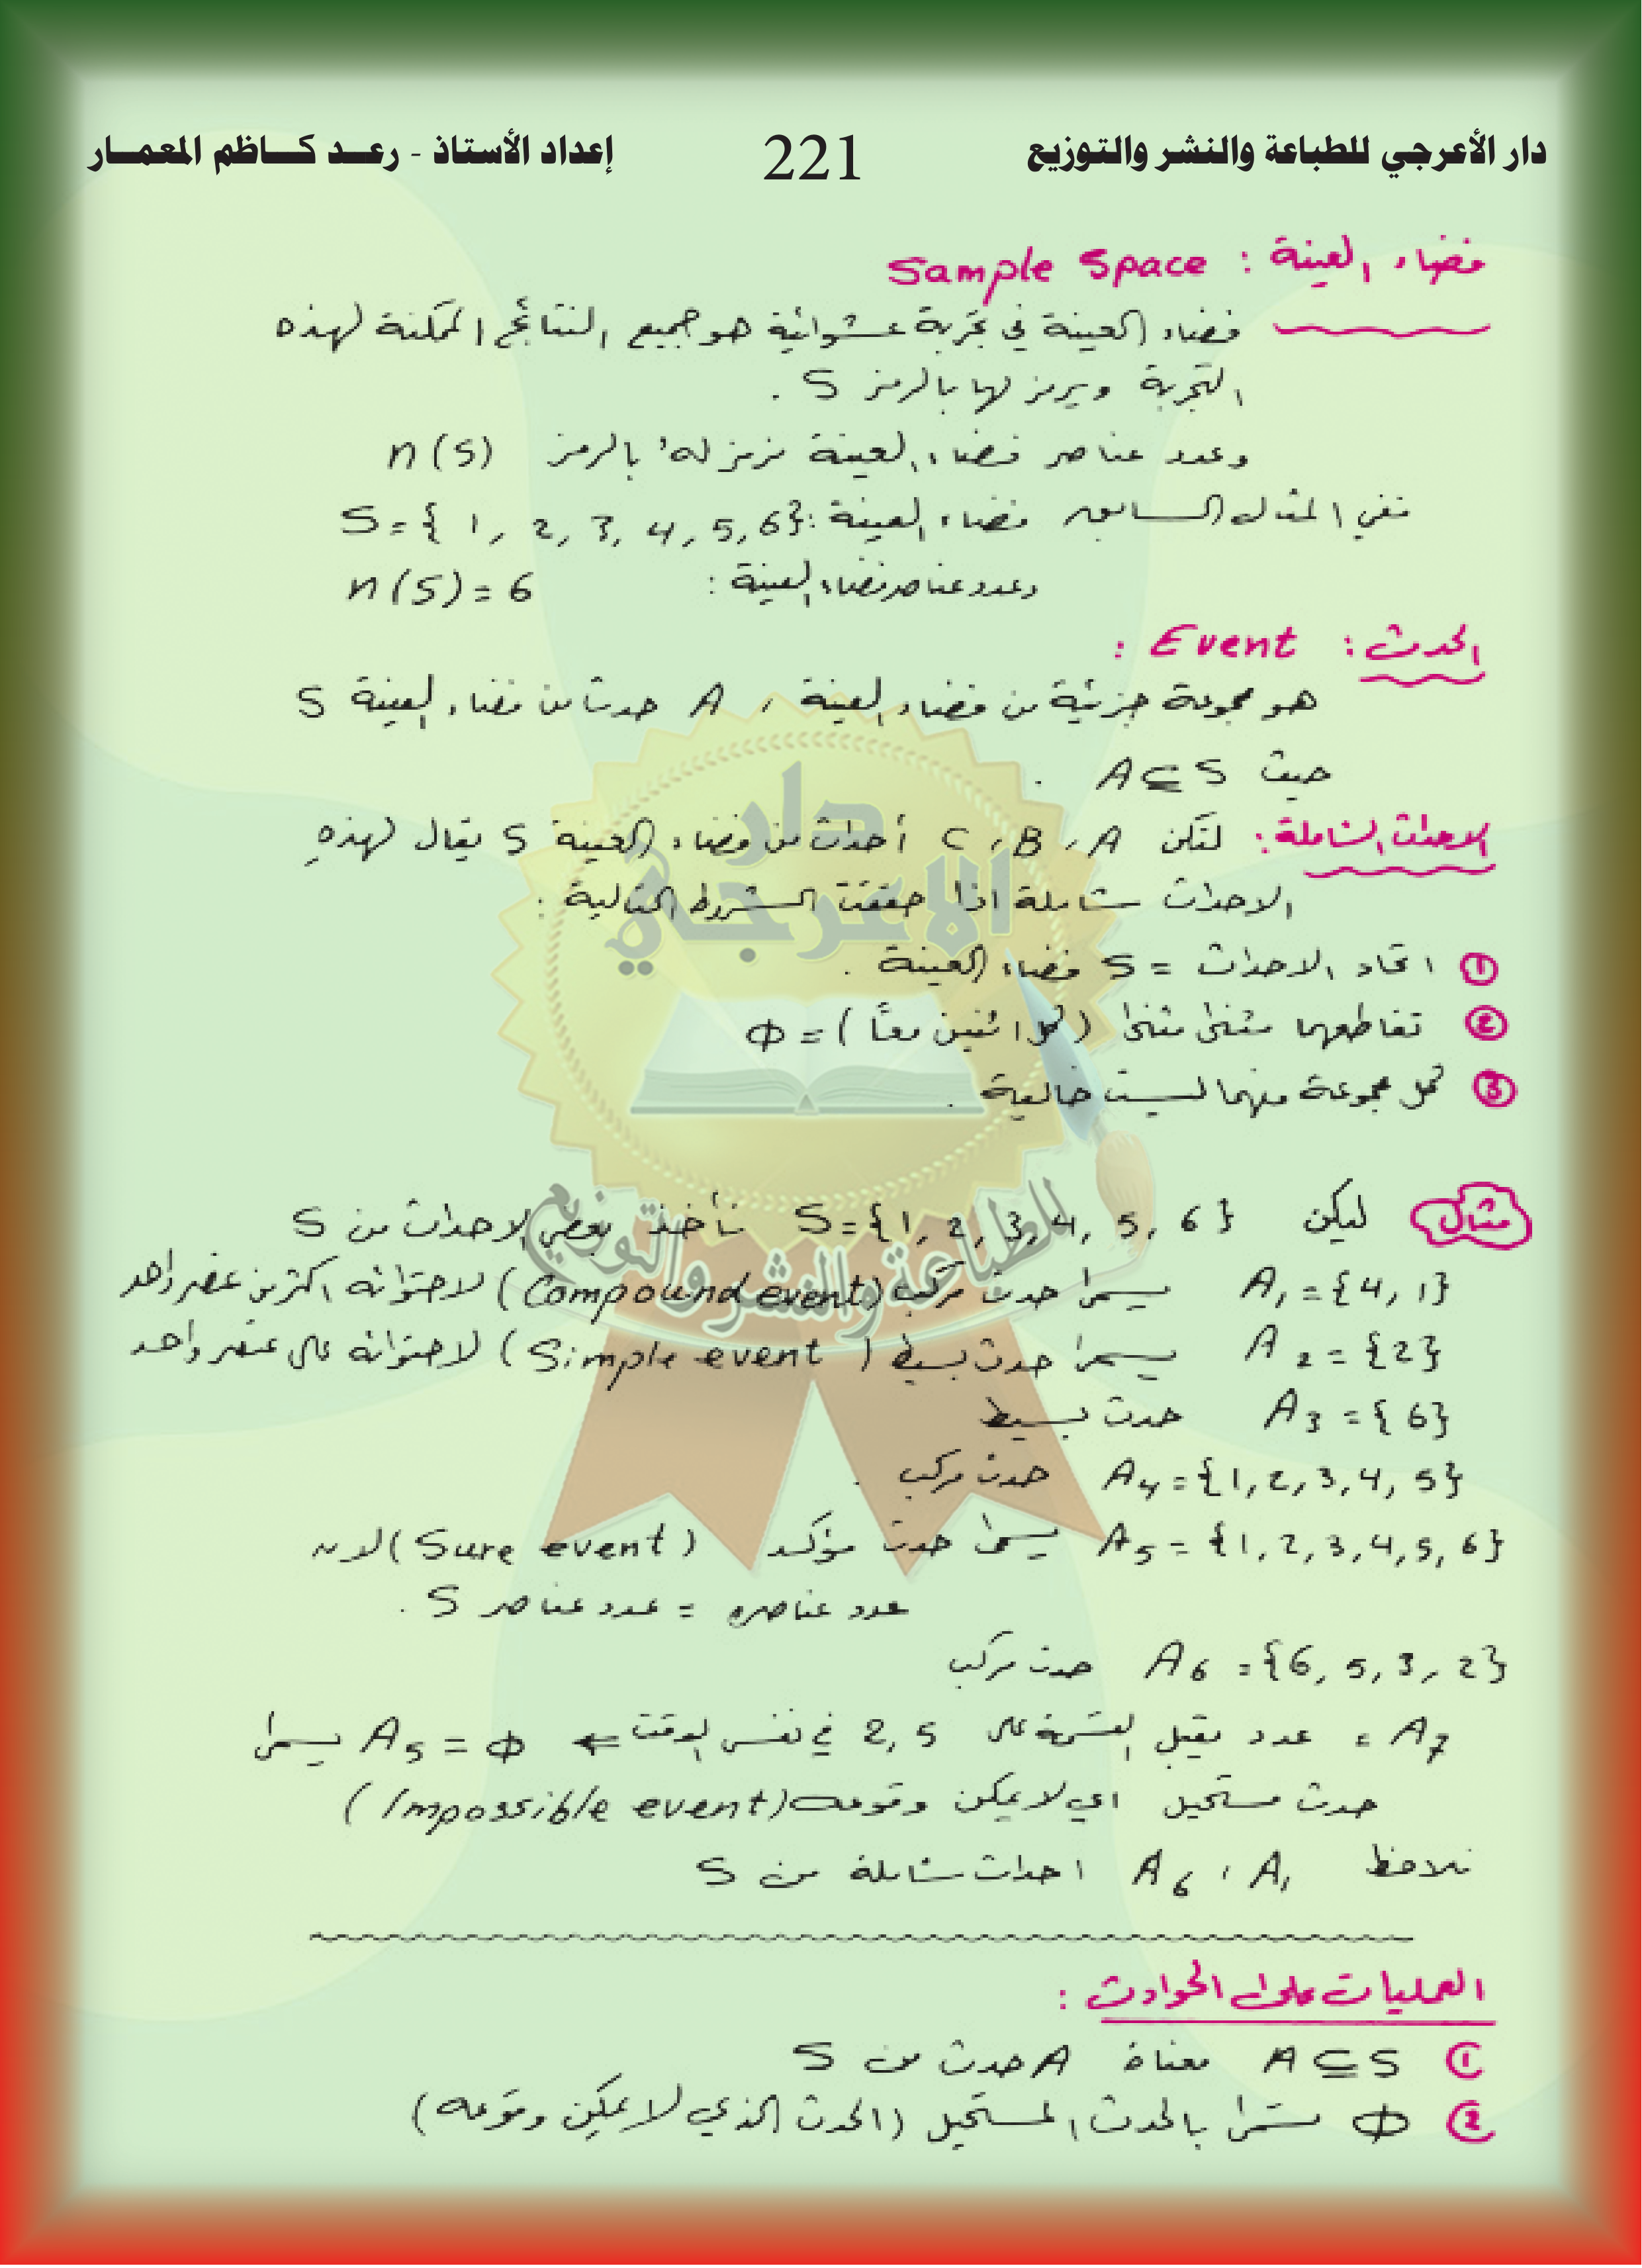 دار الأعرجي للطباعة والنشر والتوزيع 221 إعداد الأستاذ - رعد كاظم المعمار
فضاء العينة : Sample Space
فضاء العينة في تجربة عشوائية هو جميع النتائج الممكنة لهذه
التجربة ويرمز لها بالرمز S .
وعدد عناصر فضاء العينة نرمز له بالرمز n(S)
ففي المثال السابق فضاء العينة : S = { 1, 2, 3, 4, 5, 6}
وعدد عناصر فضاء العينة : n(S) = 6
الحدث : Event :
هو مجموعة جزئية من فضاء العينة ، A حدث من فضاء العينة S
حيث A ⊆ S .
الاحداث الشاملة : لتكن A ، B ، C أحداث من فضاء العينة S يقال لهذه
الاحداث شاملة اذا حققت الشروط التالية :
① اتحاد الاحداث = S فضاء العينة .
② تقاطعهما مثنى مثنى (كل اثنين معاً) = Φ
③ كل مجموعة منهما ليست خالية .
دار
الاعرجي
للطباعة والنشر والتوزيع
مثال ليكن S = {1, 2, 3, 4, 5, 6} نأخذ بعض الاحداث من S
A₁ = {4, 1} يسمى حدث مركب (Compound event) لاحتوائه اكثر من عنصر واحد
A₂ = {2} يسمى حدث بسيط (Simple event) لاحتوائه على عنصر واحد
A₃ = {6} حدث بسيط
A₄ = {1, 2, 3, 4, 5} حدث مركب .
A₅ = {1, 2, 3, 4, 5, 6} يسمى حدث مؤكد (Sure event) لانه
عدد عناصره = عدد عناصر S .
A₆ = {6, 5, 3, 2} حدث مركب
A₇ = عدد يقبل القسمة على 2, 5 في نفس الوقت ⇐ A₅ = Φ يسمى
حدث مستحيل اي لا يمكن وقوعه (Impossible event)
نلاحظ A₁ ، A₆ احداث شاملة من S
العمليات على الحوادث :
① A ⊆ S معناه A حدث من S
② Φ تسمى بالحدث المستحيل (الحدث الذي لا يمكن وقوعه)